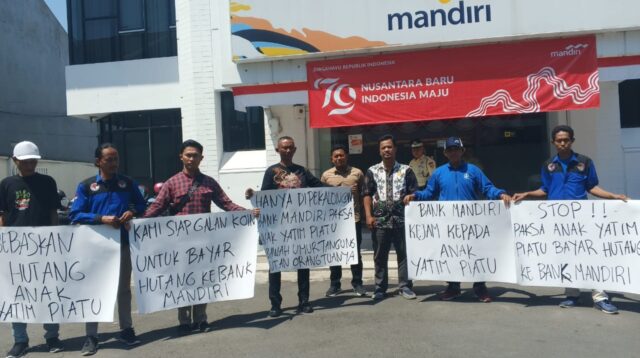 mandiri
mandiri
DIRGAHAYU REPUBLIK INDONESIA
79 NUSANTARA BARU
INDONESIA MAJU
BEBASKAN
HUTANG
ANAK
YATIM PIATU
KAMI SIAP GALAN KOIN
UNTUK BAYAR
HUTANG KE BANK
MANDIRI
HANYA DI PEKALONGAN
BANK MANDIRI PAKSA
ANAK YATIM PIATU
ORANG TUANYA
BANK MANDIRI
KEJAM KEPADA
ANAK
YATIM PIATU
STOP !!
PAKSA ANAK YATIM
PIATU BAYAR HUTANG
KE BANK MANDIRI